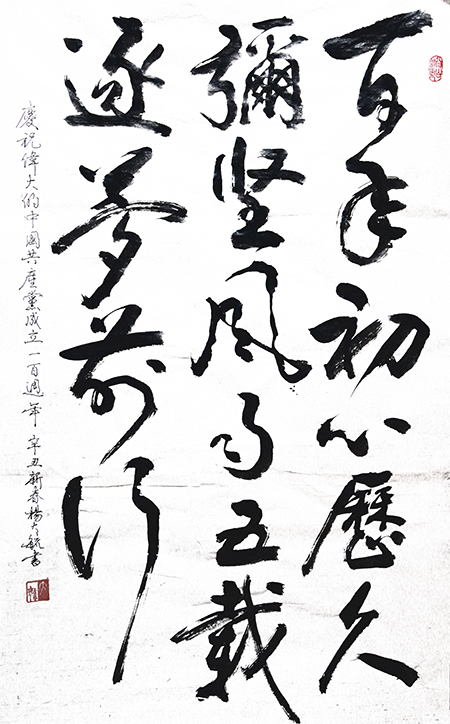 百年初心歷久
彌坚風雨五載
逐夢前行
慶祝偉大的中國共産黨成立一百週年 辛丑新春楊毓書